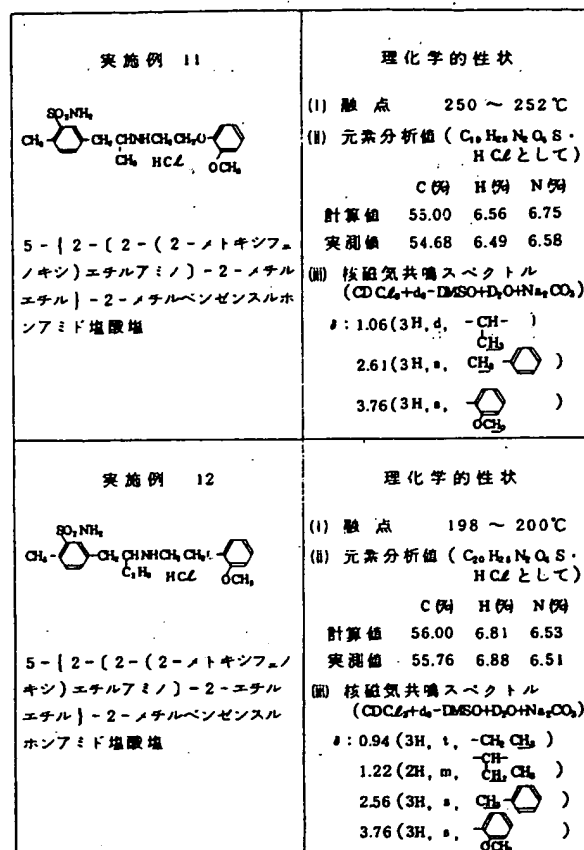 実施例 11
SO₂NH₂
CH₃ CH₂CHNHCH₂CH₂O
CH₃ HCl OCH₃
5-{2-〔2-(2-メトキシフェ
ノキシ)エチルアミノ〕-2-メチル
エチル}-2-メチルベンゼンスルホ
ンアミド塩酸塩
理化学的性状
(i) 融点 250 ~ 252℃
(ii) 元素分析値(C₁₉H₂₆N₂O₄S・
HClとして)
C(%) H(%) N(%)
計算値 55.00 6.56 6.75
実測値 54.68 6.49 6.58
(iii) 核磁気共鳴スペクトル
(CDCl₃+d₆-DMSO+D₂O+Na₂CO₃)
δ:1.06(3H,d, -CH- )
CH₃
2.61(3H,s, CH₃- )
3.76(3H,s, )
OCH₃
実施例 12
SO₂NH₂
CH₃- -CH₂CHNHCH₂CH₂O
C₂H₅ HCl OCH₃
5-{2-〔2-(2-メトキシフェノ
キシ)エチルアミノ〕-2-エチル
エチル}-2-メチルベンゼンスル
ホンアミド塩酸塩
理化学的性状
(i) 融点 198 ~ 200℃
(ii) 元素分析値(C₂₀H₂₈N₂O₄S・
HClとして)
C(%) H(%) N(%)
計算値 56.00 6.81 6.53
実測値 55.76 6.88 6.51
(iii) 核磁気共鳴スペクトル
(CDCl₃+d₆-DMSO+D₂O+Na₂CO₃)
δ:0.94(3H, t, -CH₂CH₃ )
1.22(2H, m, -CH- )
CH₂CH₃
2.56(3H, s, CH₃- )
3.76(3H, s, )
OCH₃